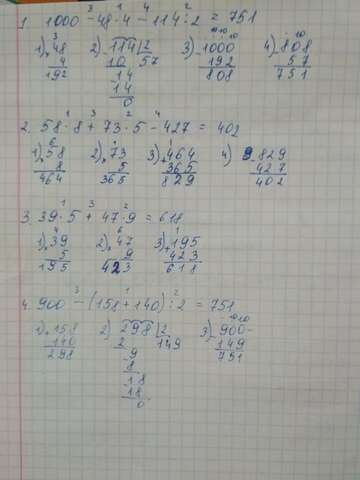 3 1 4 2
1. 1000 - 48 · 4 - 114 : 2 = 751
1) 48 2) 114 | 2 3) 1000 4) 808
4 10 57 192 57
192 14 808 751
14
0
1 3 2 4
2. 58 · 8 + 73 · 5 - 427 = 402
1) 58 2) 73 3) 464 4) 829
8 5 365 427
464 365 829 402
1 3 2
3. 39 · 5 + 47 · 9 = 618
1) 39 2) 47 3) 195
5 9 423
195 423 618
3 1 2
4. 900 - (158 + 140) : 2 = 751
1) 158 2) 298 | 2 3) 900
140 2 149 149
298 9 751
8
18
18
0